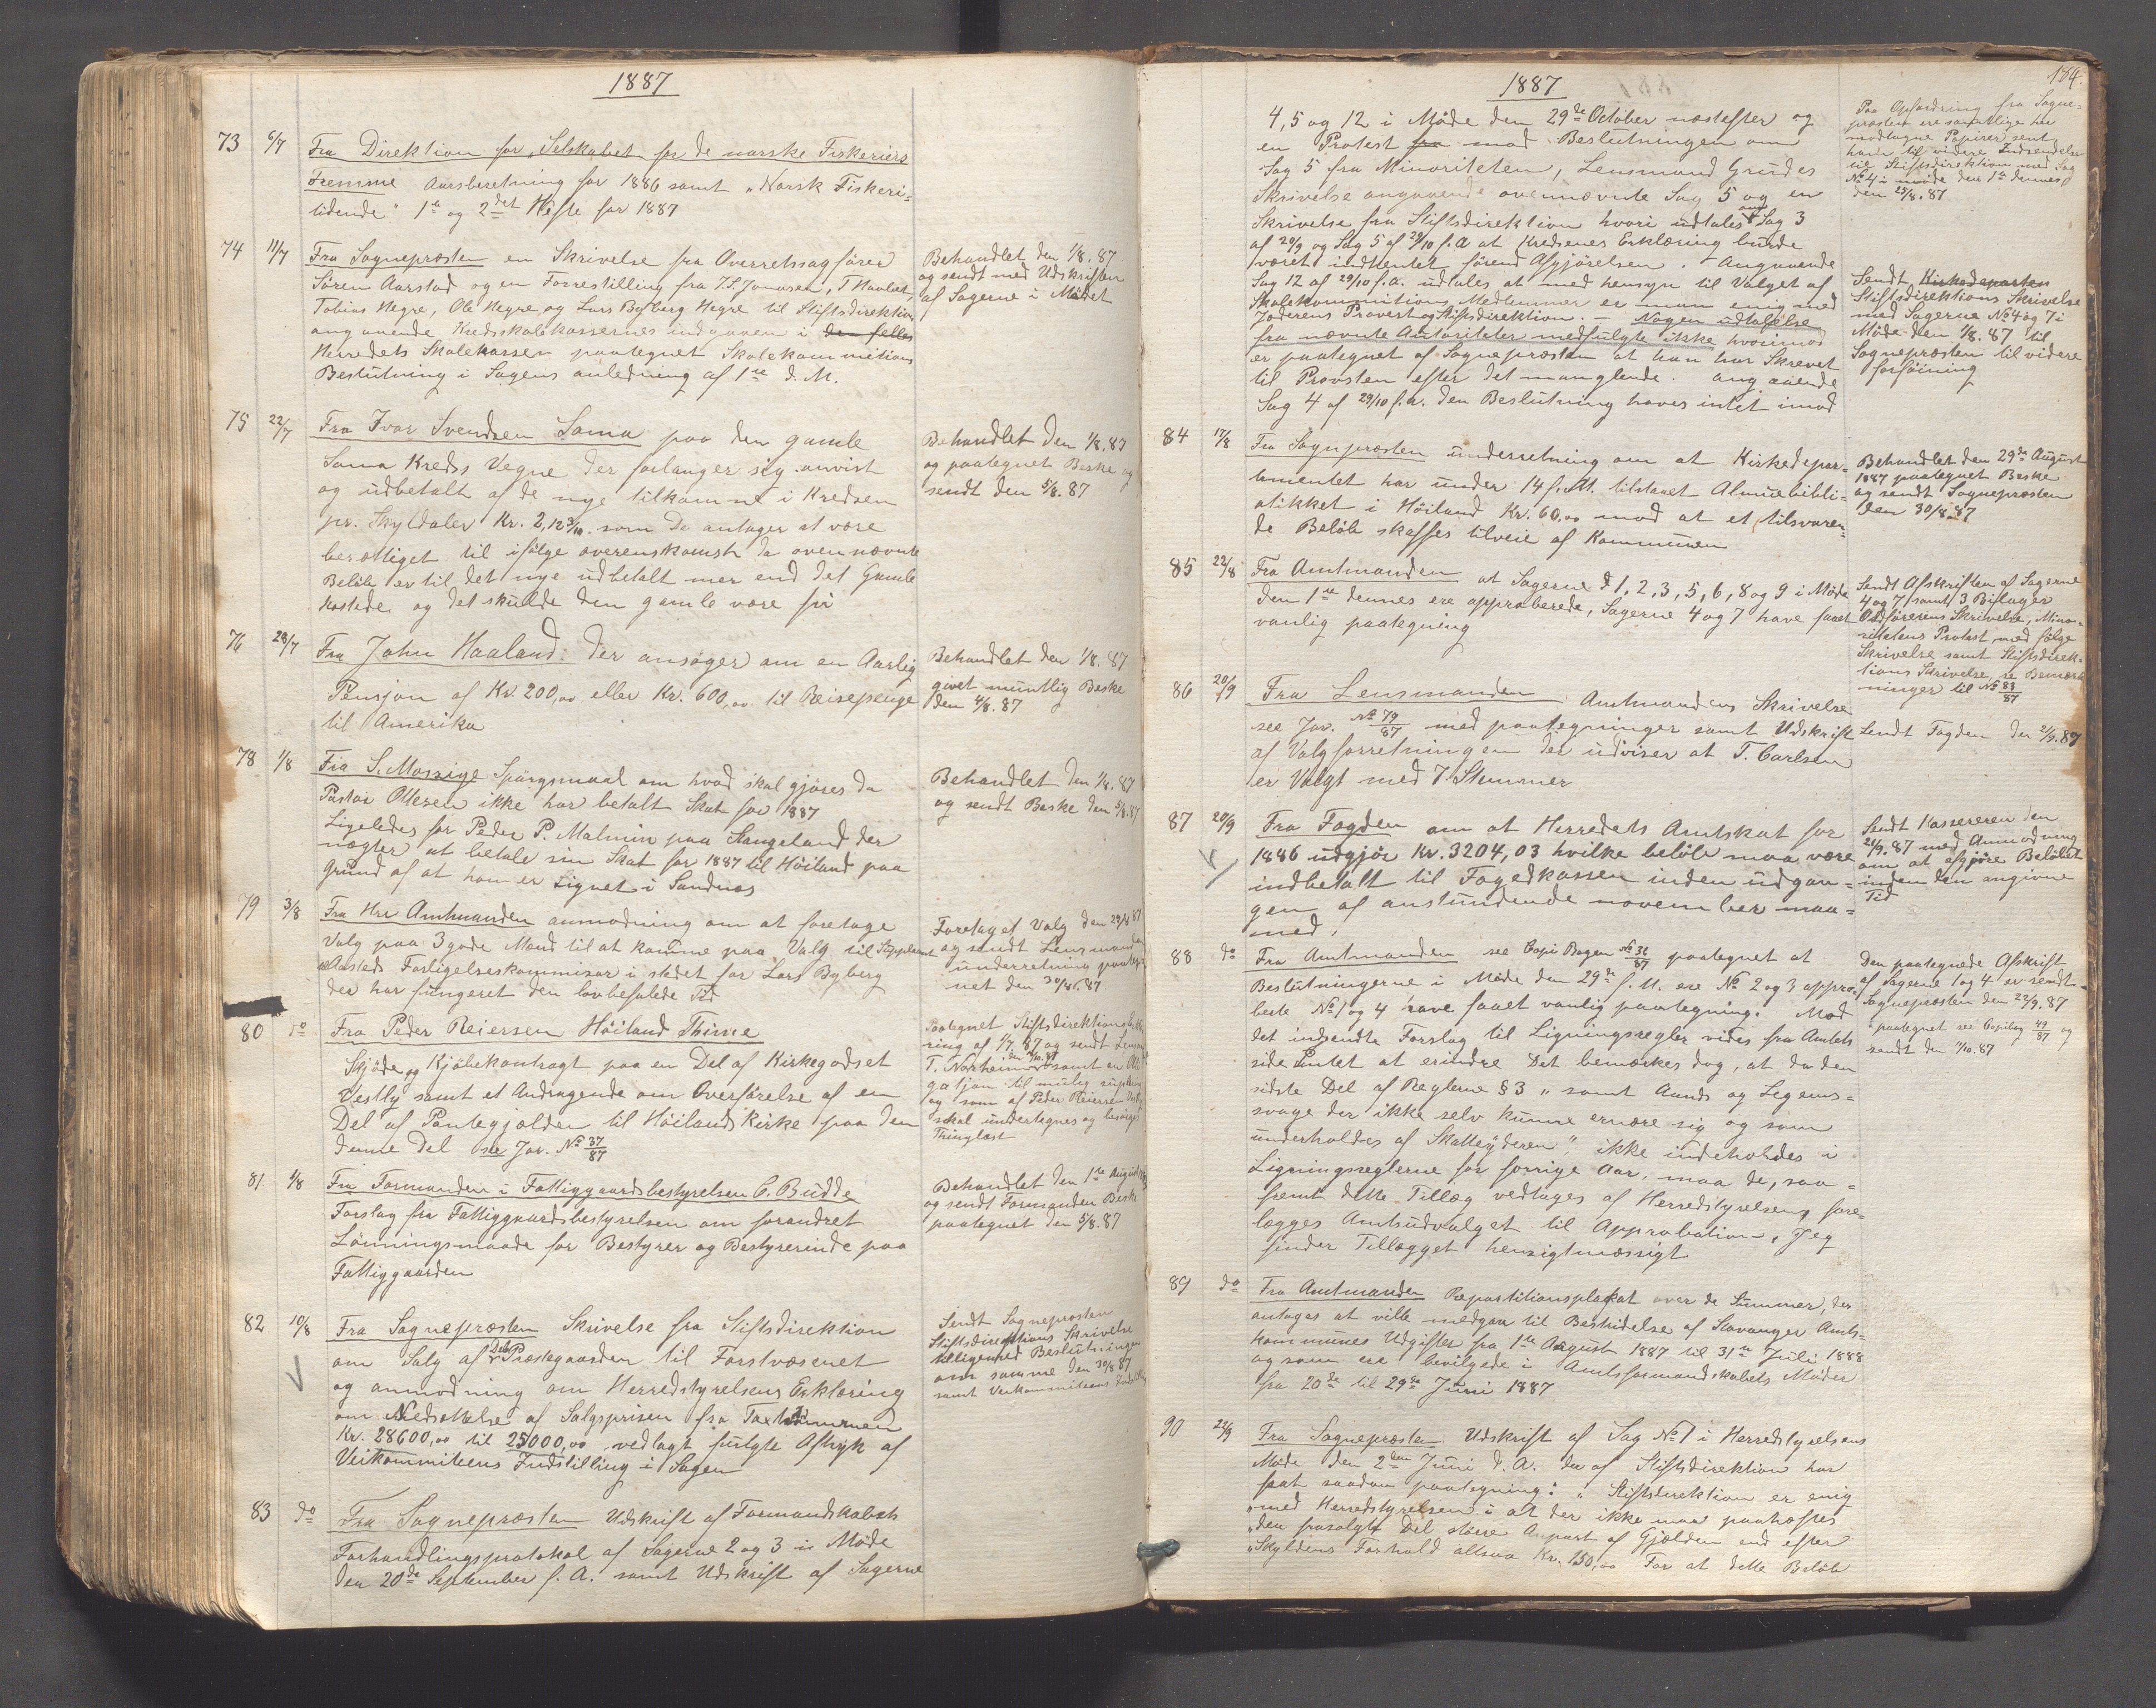 1887
73 6/7 Fra Direktion for „Selskabet for de norske Fiskeriers
Fremme Aarsberetning for 1886 samt „Norsk Fiskeri-
tidende“ 1te og 2det Hefte for 1887
74 11/7 Fra Sognepræsten en Skrivelse fra Overretssagfører
Søren Aarstad og en Forrestilling fra J. S. Jonassen, T Haaland,
Tobias Hegre, Ole Hegre og Lars Byberg Hegre til Stiftsdirektion
angaaende Kredsskolekassernes indgaaen i den fælles
Herredets Skolekassen paategnet Skolekommitions
Beslutning i Sagens anledning af 1ste d. M.
Behandlet den 1/8. 87
og sendt med Udskriften
af Sagerne i Mødet
75 22/7 Fra Ivar Svendsen Soma paa den gamle
Soma Kreds Vegne der forlanger sig anvist
og udbetalt af de nye tilkomne i Kredsen
pr. Skyldaler Kr. 2,12 3/10. som De antager at være
berættiget til ifølge overenskomst da ovennævnte
Beløb er til det nye udbetalt mer end det Gamle
kostede og det skulde den gamle være fri
Behandlet den 1/8. 87
og paategnet Beske og
sendt den 5/8. 87
76 28/7 Fra John Haaland. Der ansøger om en Aarlig
Pensjon af Kr. 200,00 eller Kr. 600,00 til Reisepenge
til Amerika
Behandlet den 1/8. 87
givet muntlig Beske
den 4/8. 87
78 1/8 Fra S. Mossige Spørgsmaal om hvad skal gjøres da
Pastor Ollesen ikke har betalt Skat for 1887
Ligeledes for Peder P. Malmin paa Stangeland der
nægter at betale sin Skat for 1887 til Höiland paa
Grund af at han er Lignet i Sandnæs
Behandlet den 1/8. 87
og sendt Beske den 5/8. 87
79 3/8 Fra Hr Amtmanden anmodning om at foretage
Valg paa 3 gode Mænd til at komme paa Valg til Supplement
Aasteds Forligelseskommisær i stedet for Lars Byberg
der har fungeret den lovbefalede Tid
Foretaget Valg den 29/8 87
og sendt Lensmanden
underretning paateg-
net den 30/8. 87
80 do Fra Peder Reiersen Höiland Thime
Skjøde og Kjøbekontragt paa en Del af Kirkegodset
Vestly samt et Andragende om Overførelse af en
Del af Pantegjælden til Höilands Kirke paa den
denne Del se Jor. No 37/87
Paategnet Stiftsdirektions
ring af 1/7. 87 og sendt Lensm
T. Norheim samt en Obli
gatjon til mulig
og som af Peder Reiersen
skal undertegnes og besørges
Thinglæst
81 4/8 Fra Formanden i Fattiggaardsbestyrelsen C. Budde
Forslag fra Fattiggaardsbestyrelsen om forandret
Lønningsmaade for Bestyrer og Bestyrerinde paa
Fattiggaarden
Behandlet den 1te August
og sendt Formanden Beske
paategnet den 5/8. 87
82 10/8 Fra Sognepræsten Skrivelse fra Stiftsdirektion
om Salg af Del Præstegaarden til Forstvæsenet
og anmodning om Herredstyrelsens Erklæring
om Nedsættelse af Salgsprisen fra Taxtsummen
Kr. 28600,00 til 25000,00 vedlagt fulgte Aftryk af
Veikommiteens Indstilling i Sagen
Sendt Sognepræsten
Stiftsdirektions Skrivelse
tilligemed Beslutningen
om samme den 30/8 87
samt Veikommiteens Indstilling
83 do Fra Sognepræsten Udskrift af Formandskabets
Forhandlingsprotokol af Sagerne 2 og 3 i Møde
den 20de September f. A. samt Udskrift af Sagerne
1887
164.
4, 5 og 12 i Møde den 29de October næstefter og
en Protest fra mod Beslutningen om
Sag 5 fra Minoriteten, Lensmand Grudes
Skrivelse angaaende ovennævnte Sag 5 og en
Skrivelse fra Stiftsdirektion hvori udtales om Sag 3
af 20/9 og Sag 5 af 29/10 f. A at Kredsenes Erklæring burde
været indhentet førend Afgjørelsen. Angaaende
Sag 12 af 29/10 f. a. udtales at med hensyn til Valget af
Skolekommitions Medlemmer er man enig med
Jæderens Provst og Stiftsdirektion. – Nogen udtalelse
fra nævnte Autoriteter medfulgte ikke hvorimod
er paategnet af Sognepræsten at han har Skrevet
til Provsten efter det manglende. angaaende
Sag 4 af 29/10 f. a. den Beslutning haves intet imod
Paa Opfordring fra Sogne-
præsten ere samtlige her
modtagne Papirer sent
ham til videre Indsendelse
til Stiftsdirektion med Sag
No 4 i møde den 1te dennes
den 23/8. 87
Sendt Kirkedeparten
Stiftsdirektions Skrivelse
med Sagerne No 4 og 7 i
Møde den 1/8. 87 til
Sognepræsten til videre
forføining
84 17/8 Fra Sognpræsten underretning om at Kirkedepar-
temantet har under 14 f. M. tilstaaet Almuebibli-
otikket i Höiland Kr. 60,00 mod at et tilsvaren-
de Beløb skaffes tilveie af Kommunen
Behandlet den 29de August
1887 paategnet Beske
og sendt Sognepræsten
den 30/8. 87
85 22/8 Fra Amtmanden at Sagerne 1, 2, 3, 5, 6, 8 og 9 i Møde
den 1ste dennes ere approberede, Sagerne 4 og 7 have faaet
vanlig paategning
Sendt Afskriften af Sagerne
4 og 7 samt 3 Bilager
Ordførerens Skrivelse, Mino-
ritetens Protest med følge
Skrivelse samt Stiftsdirek-
tions Skrivelse, se Bemærk
ninger til No 83/87
86 20/9 Fra Lensmanden Amtmandens Skrivelse
see Jor. No 79/87 med paategninger samt Udskrift
af Valgforretningen der udviser at T. Carlsen
er Valgt med 7. Stemmer
Sendt Fogden den 21/9. 87
87 20/9 Fra Fogden om at Herredets Amtskat for
1886 udgjør Kr. 3204,03 hvilke beløb maa være
indbetalt til Fogedkassen inden udgan-
gen af anstundende november maa-
ned.
Sendt Kassereren den
21/9. 87 med Anmodning
om at afgjøre Beløbet
inden den angivne
Tid
88 do Fra Amtmanden see Copi Bogen No 32/87 paategnet at
Beslutningerne i Møde den 29de f. M. ere No 2 og 3 appro-
berte No 1 og 4 have faaet vanlig paategning. Mod
det indsendte Forslag til Ligningsregler vides fra Amtets
side Intet at erindre Det bemærkes dog, at da den
sidste Del af Reglerne § 3 „samt Aands og Legems-
svage der ikke selv kunne ernære sig og som
underholdes af Skatteyderen“, ikke indeholdes i
Ligningsreglerne for forrige Aar, maa de, saa-
fremt dette Tillæg vedtages af Herredstyrelsen, fore-
lægges Amtsudvalget til Approbation, Jeg
finder Tillægget hensigtmæssigt
Den paategnede Afskrift
af Sagerne 1 og 4 er sendt
Sognepræsten den 22/9. 87
paategnet see Copibog 49/87 og
sendt den 1/10. 87
89 do Fra Amtmanden Repartitionsplakat over de Summer, der
antages at ville medgaa til Bestridelse af Stavanger Amts-
kommunes Udgifter fra 1te August 1887 til 31te Juli 1888
og som ere bevilgede i Amtsformandskabets Møder
fra 20de til 29de Juni 1887
90 22/9 Fra Sognepræsten Udskrift af Sag No 1 i Herredstyrelsens
Møde den 2den Juni d. A. der af Stiftsdirektion har
faat saadan paategning: „Stiftsdirektion er enig
„med Herredstyrelsen i at der ikke maa paahæftes
„den frasolgte Del større Anpart af Gjælden end efter
„Skyldens Forhold altsaa Kr. 150,00 For at dette Beløb